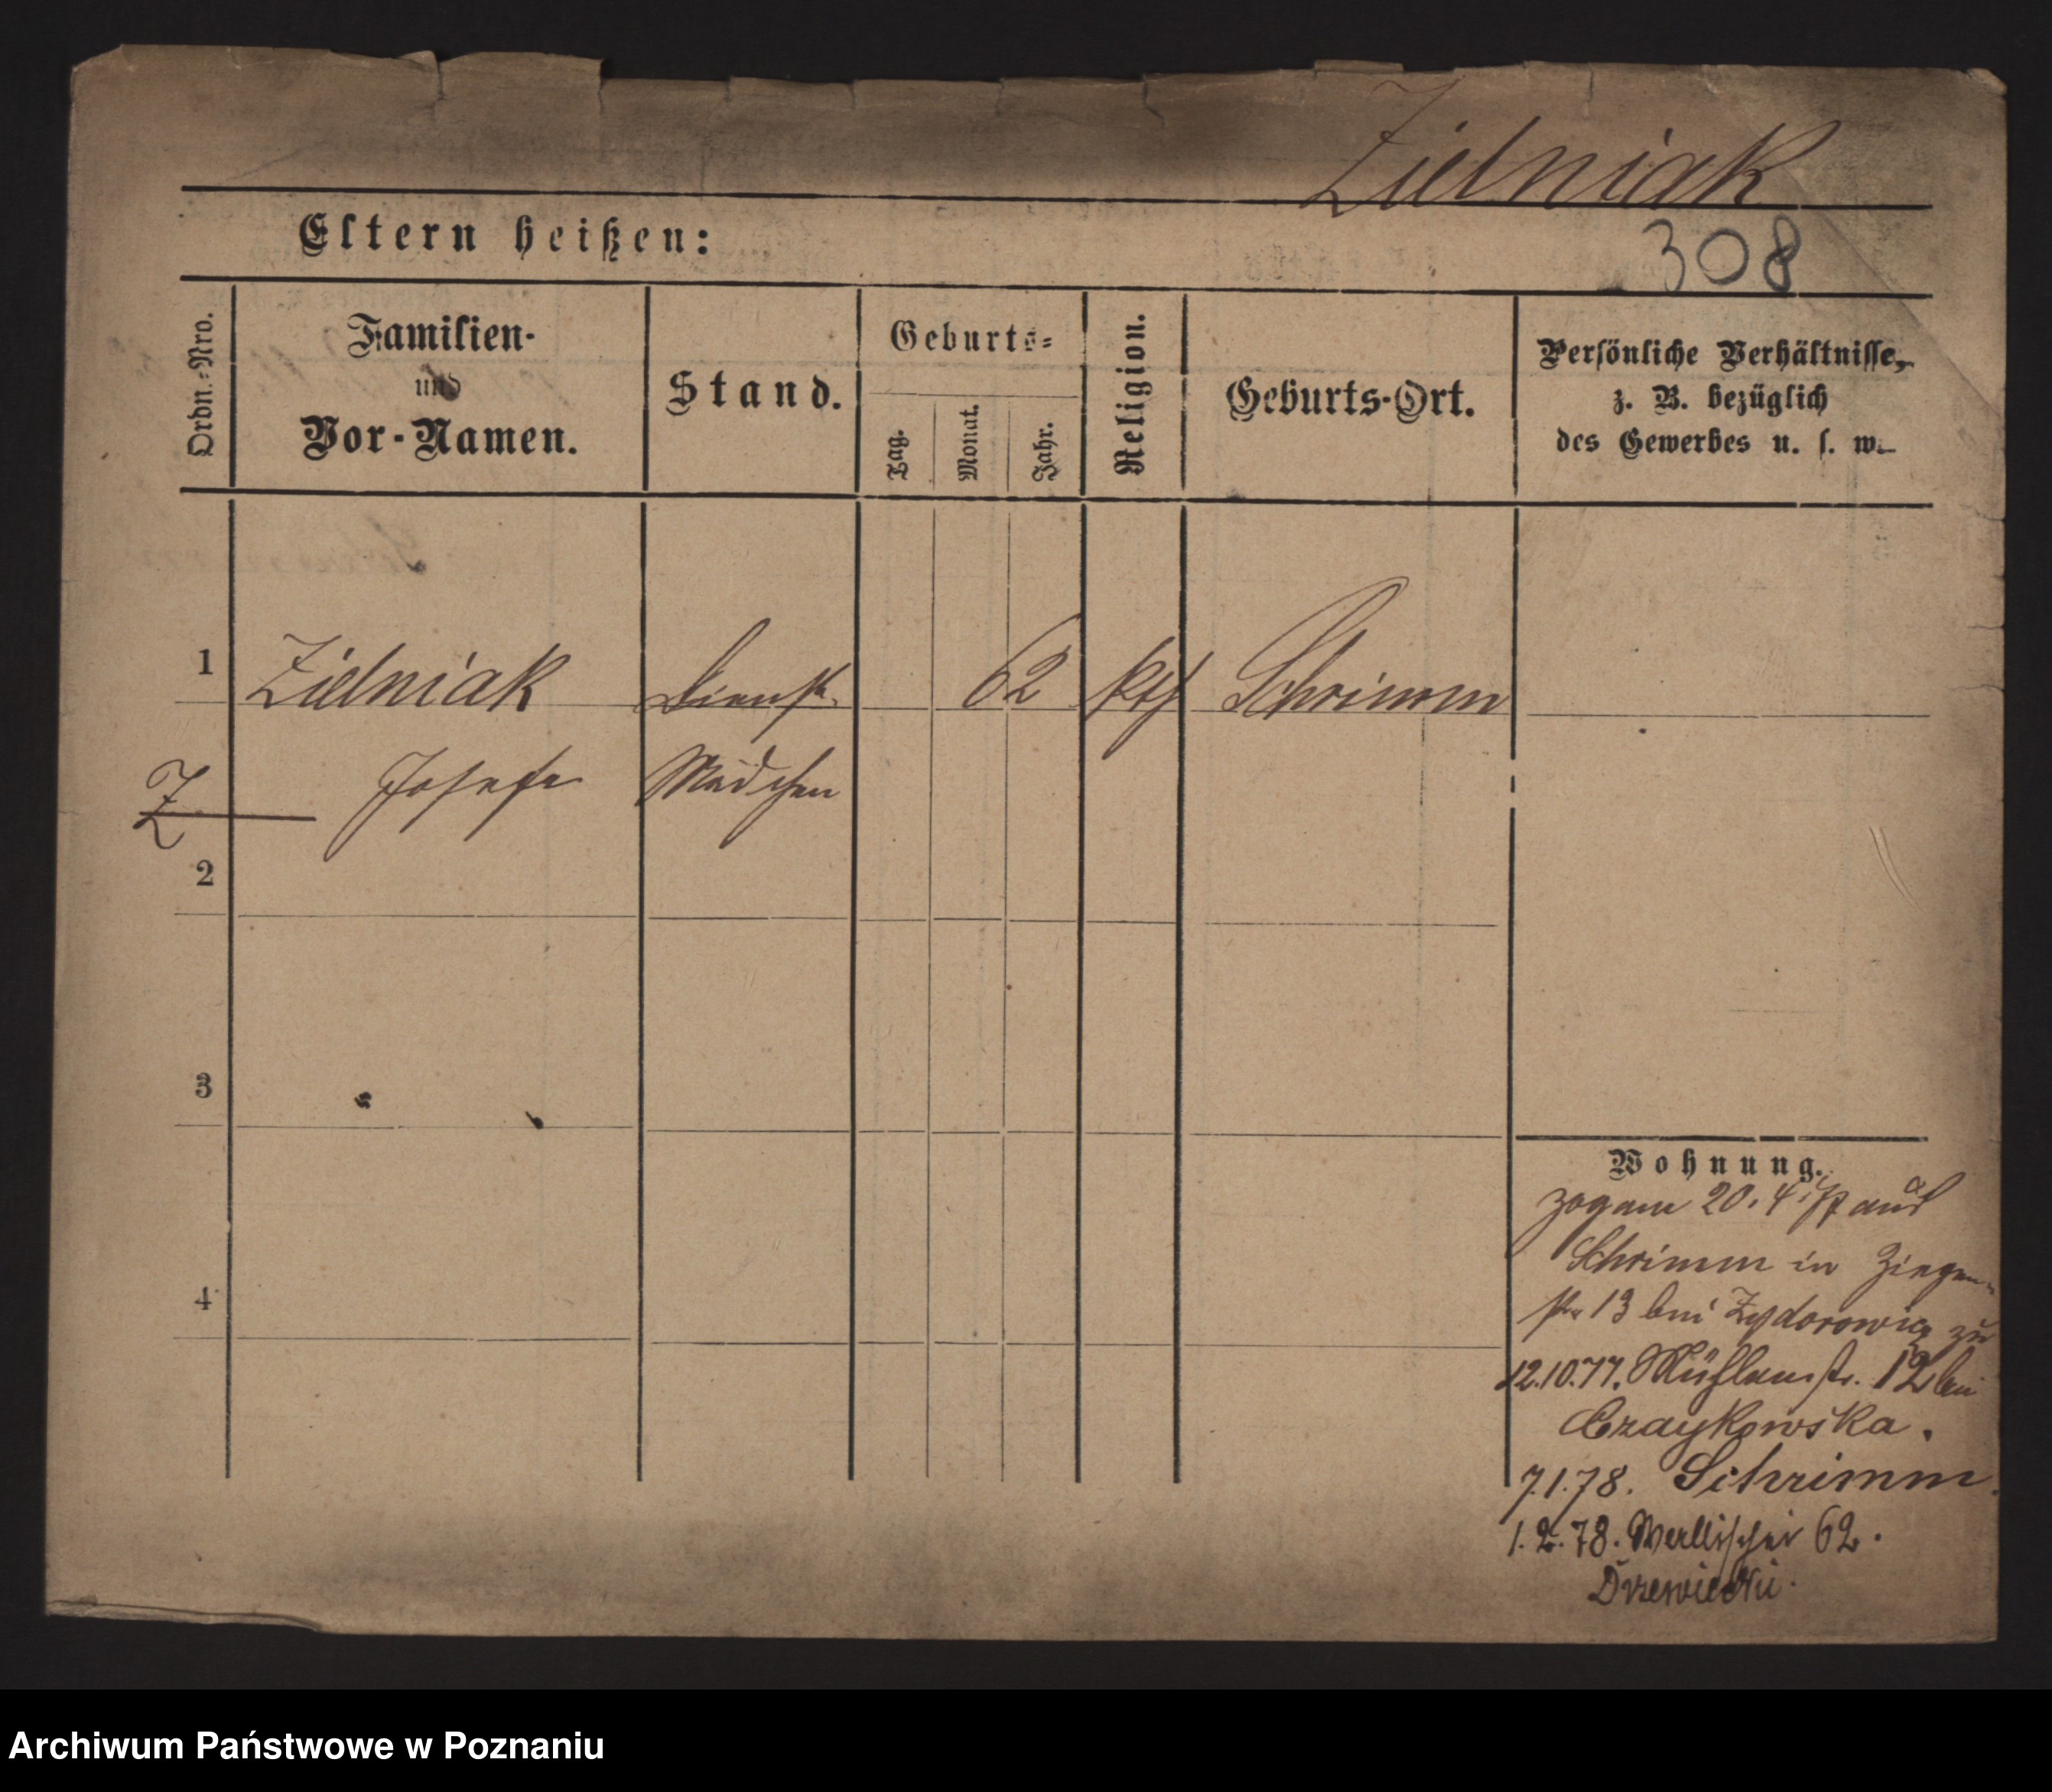 Zielniak
Eltern heißen:
308
Ordn.-Nro.
Familien-
und
Vor-Namen.
Stand.
Geburts-
Tag.
Monat.
Jahr.
Religion.
Geburts-Ort.
Persönliche Verhältnisse,
z. B. bezüglich
des Gewerbes u. s. w.
1 Zielniak Dienst 62 kth Schrimm
Josefa Mädchen
Z
2
3
4
Wohnung.
zog am 20. 4. 77 aus
Schrimm in Ziegen-
str 13 bei Zydorowicz zu
12.10.77. Mühlenstr. 12 bei
Czaykowska.
7.1.78. Schrimm.
1. 2. 78. Wallischei 62.
Drzewiecki.
Archiwum Państwowe w Poznaniu